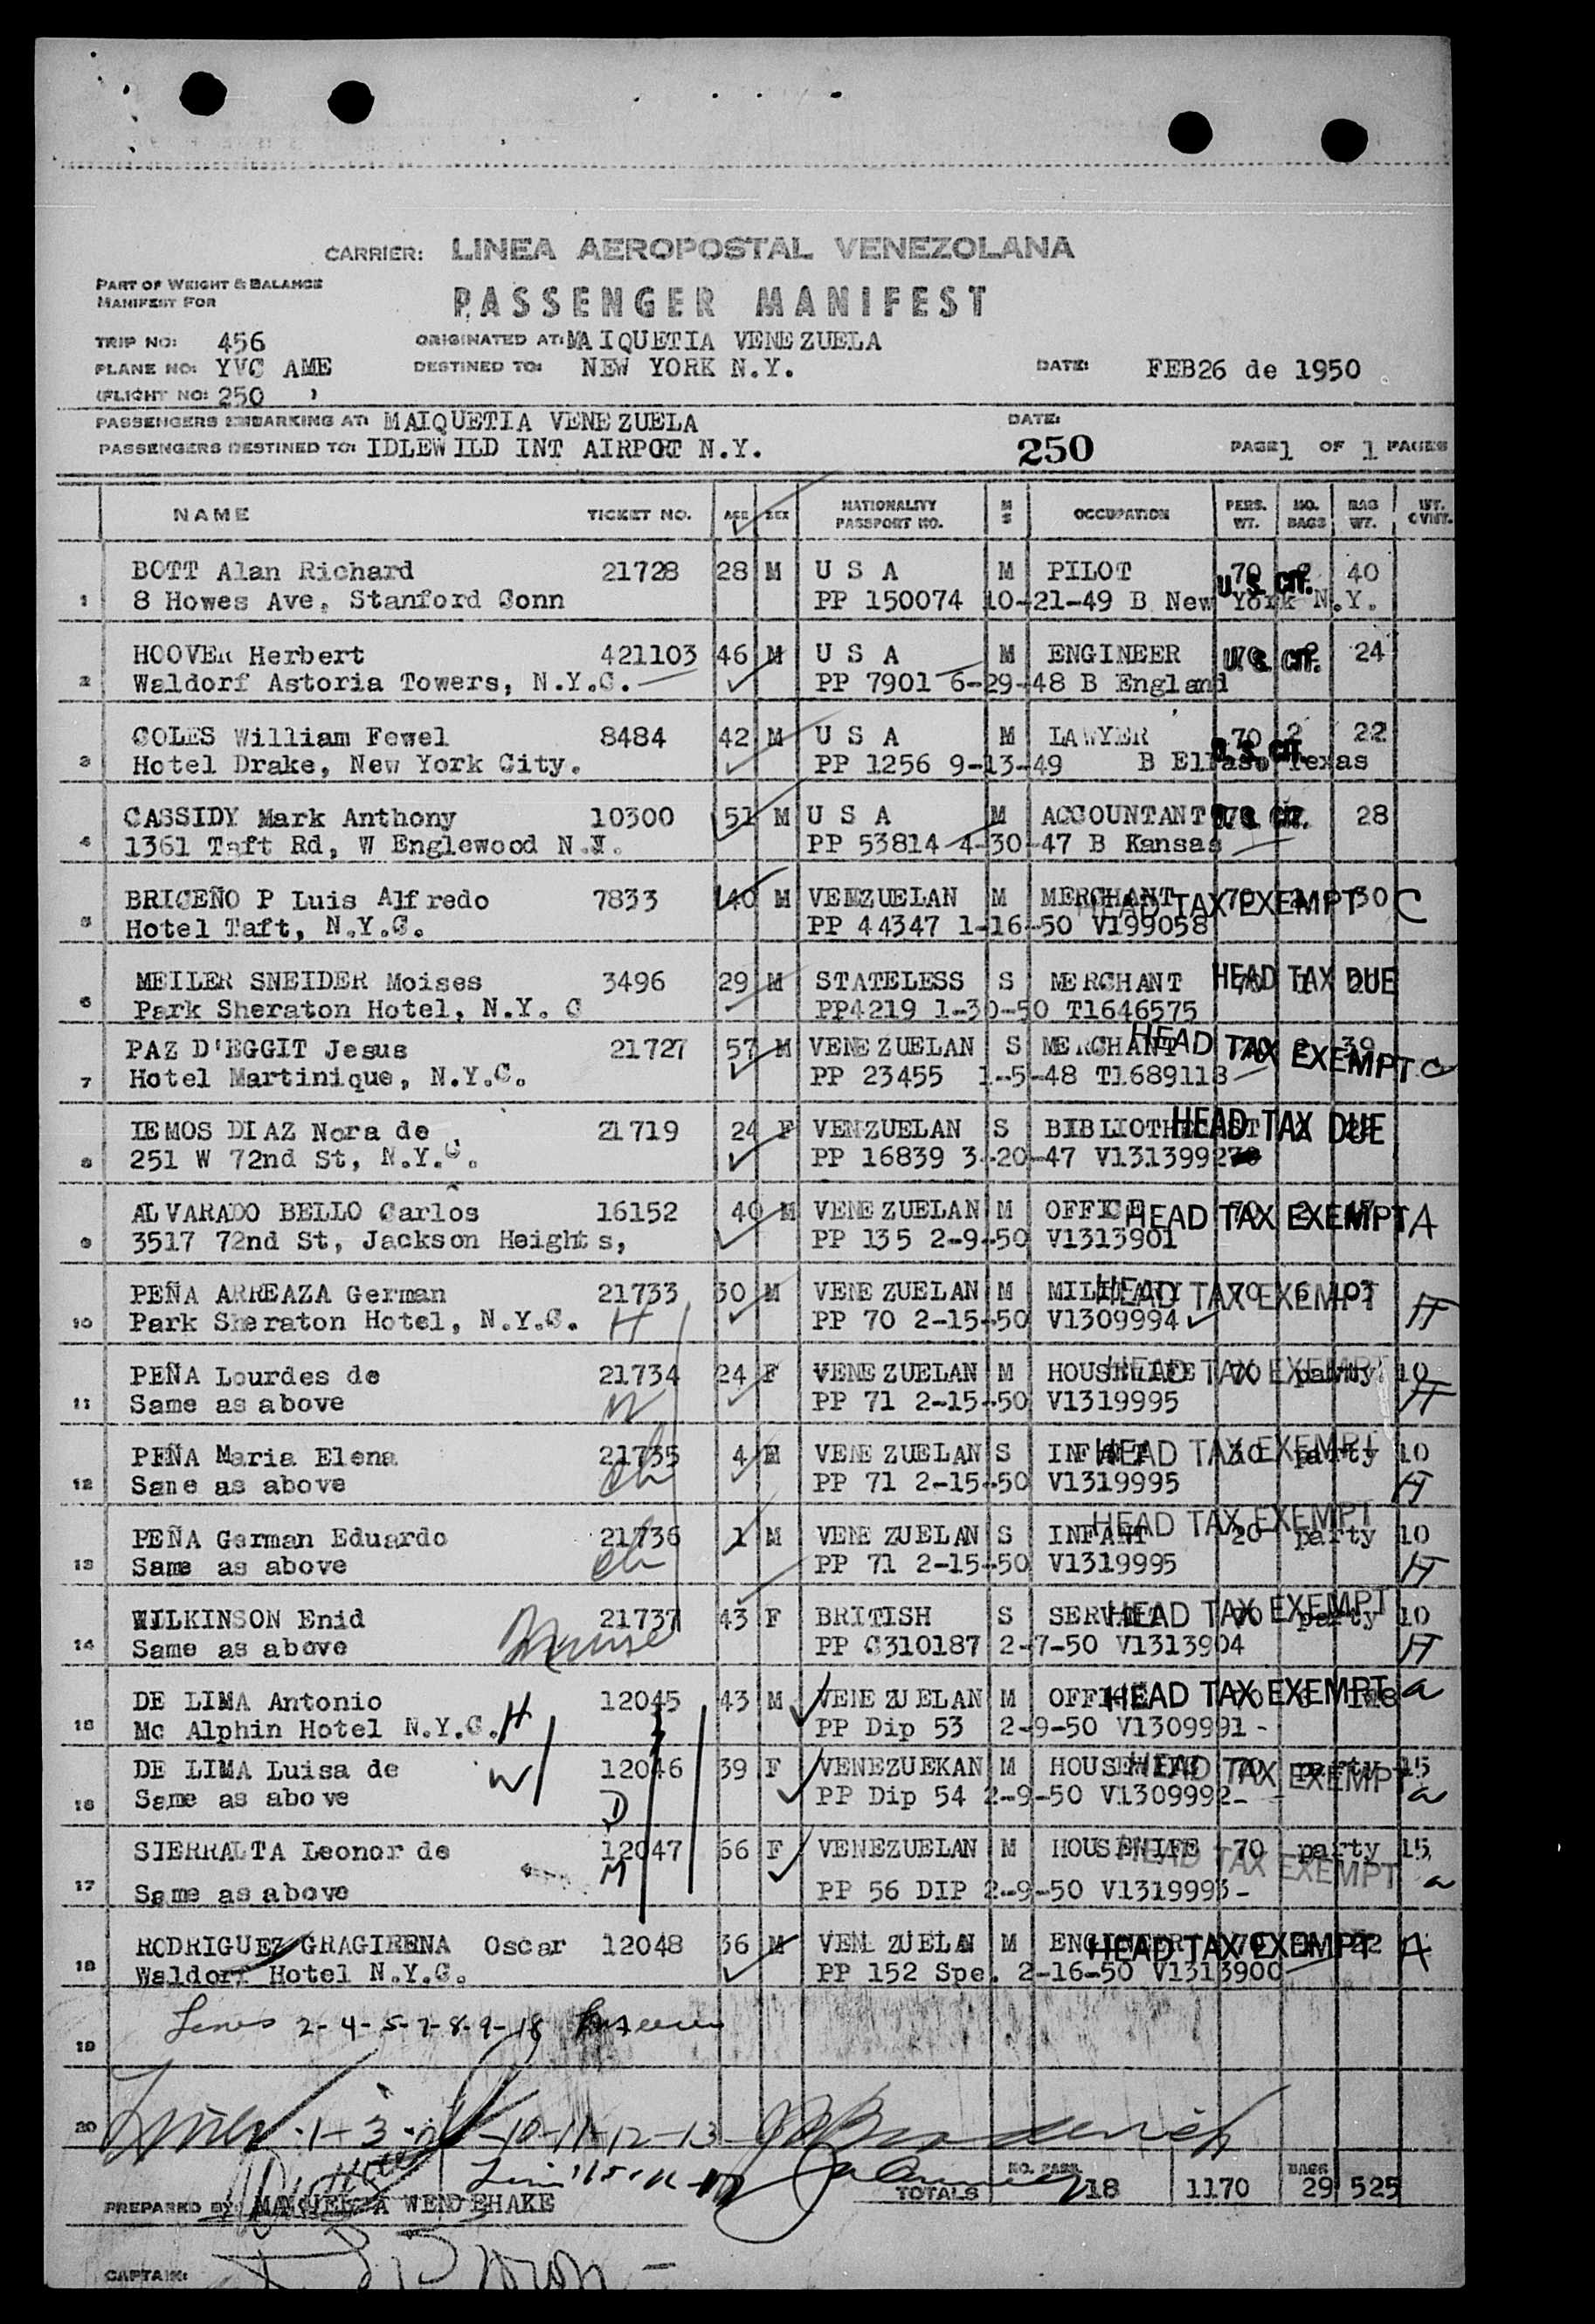 CARRIER: LINEA AEROPOSTAL VENEZOLANA
PART OF WEIGHT & BALANCE
MANIFEST FOR
PASSENGER MANIFEST
TRIP NO: 456 ORIGINATED AT: MAIQUETIA VENEZUELA
PLANE NO: YVC AME DESTINED TO: NEW YORK N.Y. DATE: FEB26 de 1950
(FLIGHT NO: 250 )
PASSENGERS EMBARKING AT: MAIQUETIA VENEZUELA DATE:
PASSENGERS DESTINED TO: IDLEWILD INT AIRPORT N.Y. 250 PAGE 1 OF 1 PAGES
NAME TICKET NO. AGE SEX NATIONALITY PASSPORT NO. M S OCCUPATION PERS. WT. NO. BAGS BAG WT. INT. OVNT.
BOTT Alan Richard 21728 28 M U S A M PILOT 70 2 40
U. S. CIT.
1 8 Howes Ave, Stanford Conn PP 150074 10-21-49 B New York N.Y.
HOOVER Herbert 421103 46 M U S A M ENGINEER 70 2 24
U. S. CIT.
2 Waldorf Astoria Towers, N.Y.C. PP 7901 6-29-48 B England
COLES William Fewel 8484 42 M U S A M LAWYER 70 2 22
U. S. CIT.
3 Hotel Drake, New York City. PP 1256 9-13-49 B ElPaso Texas
CASSIDY Mark Anthony 10300 51 M U S A M ACCOUNTANT 70 28
U. S. CIT.
4 1361 Taft Rd, W Englewood N.J. PP 53814 4-30-47 B Kansas
BRICEÑO P Luis Alfredo 7833 40 M VENZUELAN M MERCHANT 70 30
HEAD TAX EXEMPT C
5 Hotel Taft, N.Y.C. PP 44347 1-16-50 V199058
MEILER SNEIDER Moises 3496 29 M STATELESS S MERCHANT
HEAD TAX DUE
6 Park Sheraton Hotel, N.Y. C PP4219 1-30-50 T1646575
PAZ D'EGGIT Jesus 21727 57 M VENEZUELAN S MERCHANT 70 2 39
HEAD TAX EXEMPT C
7 Hotel Martinique, N.Y.C. PP 23455 1-5-48 T1689113
LEMOS DIAZ Nora de 21719 24 F VENZUELAN S
HEAD TAX DUE
8 251 W 72nd St, N.Y.C. PP 16839 3-20-47
ALVARADO BELLO Carlos 16152 40 M VENEZUELAN M OFFICE 70 2
HEAD TAX EXEMPT A
9 3517 72nd St, Jackson Heights, PP 135 2-9-50 V1313901
PEÑA ARREAZA German 21733 30 M VENEZUELAN M MILITARY 70 6 103
HEAD TAX EXEMPT
10 Park Sheraton Hotel, N.Y.C. H PP 70 2-15-50 V1309994
PEÑA Lourdes de 21734 24 F VENEZUELAN M HOUSEWIFE 70 party 10
HEAD TAX EXEMPT
11 Same as above W PP 71 2-15-50 V1319995
PEÑA Maria Elena 21735 4 VENEZUELAN S INFANT 30 party 10
HEAD TAX EXEMPT
12 Same as above ch PP 71 2-15-50 V1319995
HEAD TAX EXEMPT
PEÑA German Eduardo 21736 1 M VENEZUELAN S INFANT 20 party 10
13 Same as above ch PP 71 2-15-50 V1319995
WILKINSON Enid 21737 43 F BRITISH S SERVANT 70 party 10
HEAD TAX EXEMPT
14 Same as above Nurse PP C310187 2-7-50 V1313904
DE LIMA Antonio 12045 43 M VENEZUELAN M 70
HEAD TAX EXEMPT a
15 Mc Alphin Hotel N.Y.C. H PP Dip 53 2-9-50 V1309991 -
DE LIMA Luisa de W 12046 39 F VENEZUEKAN M HOUSEWIFE 70 party 15
HEAD TAX EXEMPT a
16 Same as above D PP Dip 54 2-9-50 V1309992-
SIERRALTA Leonor de 12047 66 F VENEZUELAN M HOUSEWIFE 70 party 15
M HEAD TAX EXEMPT a
17 Same as above PP 56 DIP 2-9-50 V1319993-
RODRIGUEZ GRAGIRENA Oscar 12048 36 M VENEZUELAN M ENGINEER 70
HEAD TAX EXEMPT A
18 Waldorf Hotel N.Y.C. PP 152 Spe. 2-16-50 V1313900
19 Lines 2-4-5-7-8-9-18
20 Lines 1-3 -10-11-12-13
NO. PASS. 18 1170 BAGS 29 525
TOTALS
PREPARED BY: WENDEHAKE
CAPTAIN: